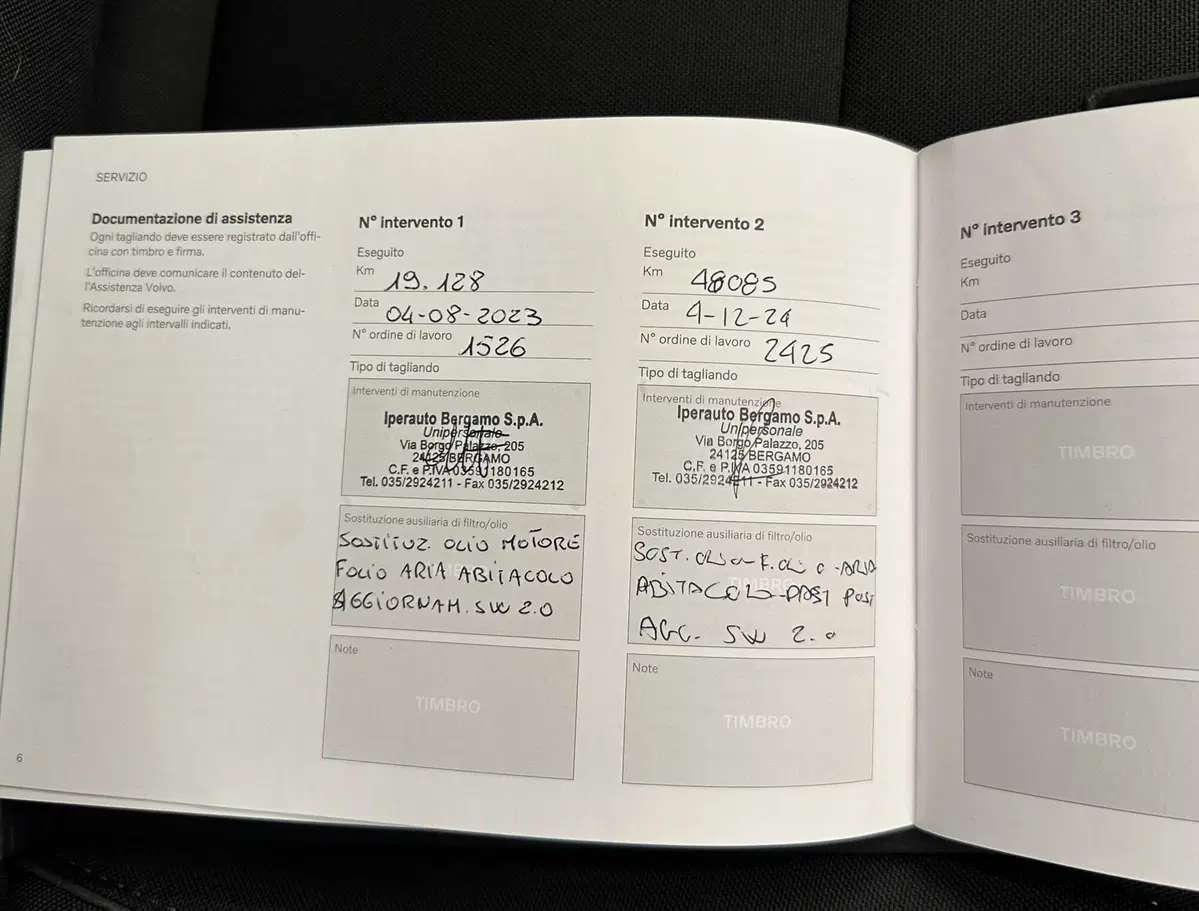 SERVIZIO
Documentazione di assistenza
Ogni tagliando deve essere registrato dall'offi-
cina con timbro e firma.
L'officina deve comunicare il contenuto del-
l'Assistenza Volvo.
Ricordarsi di eseguire gli interventi di manu-
tenzione agli intervalli indicati.
6
N° intervento 1
Eseguito
Km 19.128
Data 04-08-2023
N° ordine di lavoro 1526
Tipo di tagliando
Interventi di manutenzione
Iperauto Bergamo S.p.A.
Unipersonale
Via Borgo Palazzo, 205
24125 BERGAMO
C.F. e P.IVA 03591180165
Tel. 035/2924211 - Fax 035/2924212
Sostituzione ausiliaria di filtro/olio
SOSTITUZ. OLIO MOTORE
FOLIO ARIA ABITACOLO
AGGIORNAM. SW 2.0
Note
TIMBRO
N° intervento 2
Eseguito
Km 48085
Data 4-12-24
N° ordine di lavoro 2425
Tipo di tagliando
Interventi di manutenzione
Iperauto Bergamo S.p.A.
Unipersonale
Via Borgo Palazzo, 205
24125 BERGAMO
C.F. e P.IVA 03591180165
Tel. 035/2924211 - Fax 035/2924212
Sostituzione ausiliaria di filtro/olio
SOST. OLIO - F. OLIO - ARIA
ABITACOLO - POST
AGG. SW 2.0
Note
TIMBRO
N° intervento 3
Eseguito
Km
Data
N° ordine di lavoro
Tipo di tagliando
Interventi di manutenzione
TIMBRO
Sostituzione ausiliaria di filtro/olio
TIMBRO
Note
TIMBRO